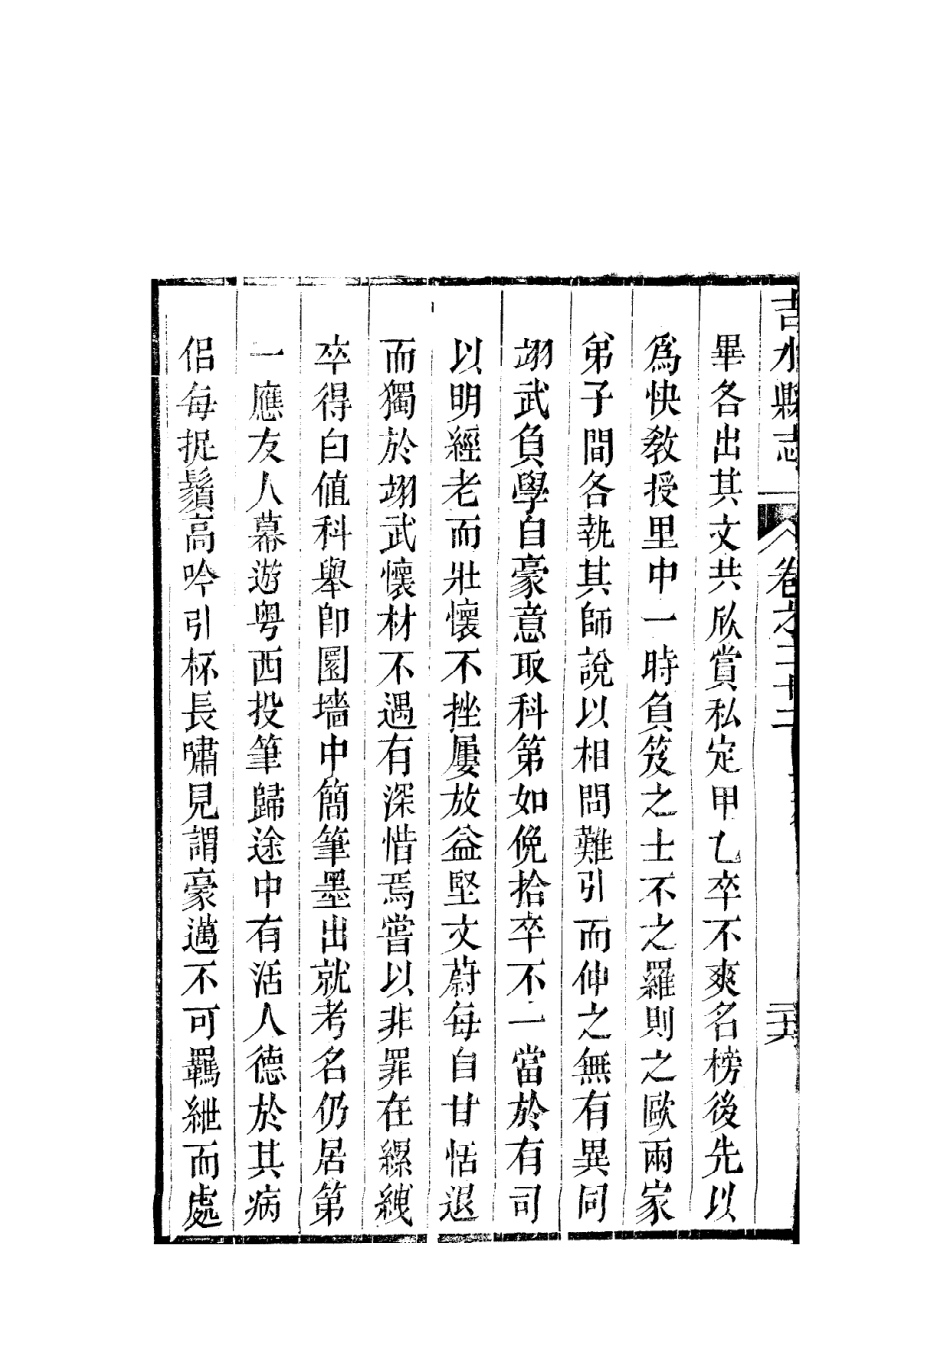 吉水縣志 卷之三十二 二十六
畢各出其文共欣賞私定甲乙卒不爽名榜後先以
爲快敎授里中一時負笈之士不之羅則之歐兩家
弟子間各執其師說以相問難引而伸之無有異同
翊武負學自豪意取科第如俛拾卒不一當於有司
以明經老而壯懷不挫屢放益堅文蔚每自甘恬退
而獨於翊武懷材不遇有深惜焉嘗以非罪在縲絏
卒得白値科舉卽圜墻中簡筆墨出就考名仍居第
一應友人幕遊粤西投筆歸途中有活人德於其病
侶每捉鬚高吟引杯長嘯見謂豪邁不可羈紲而處